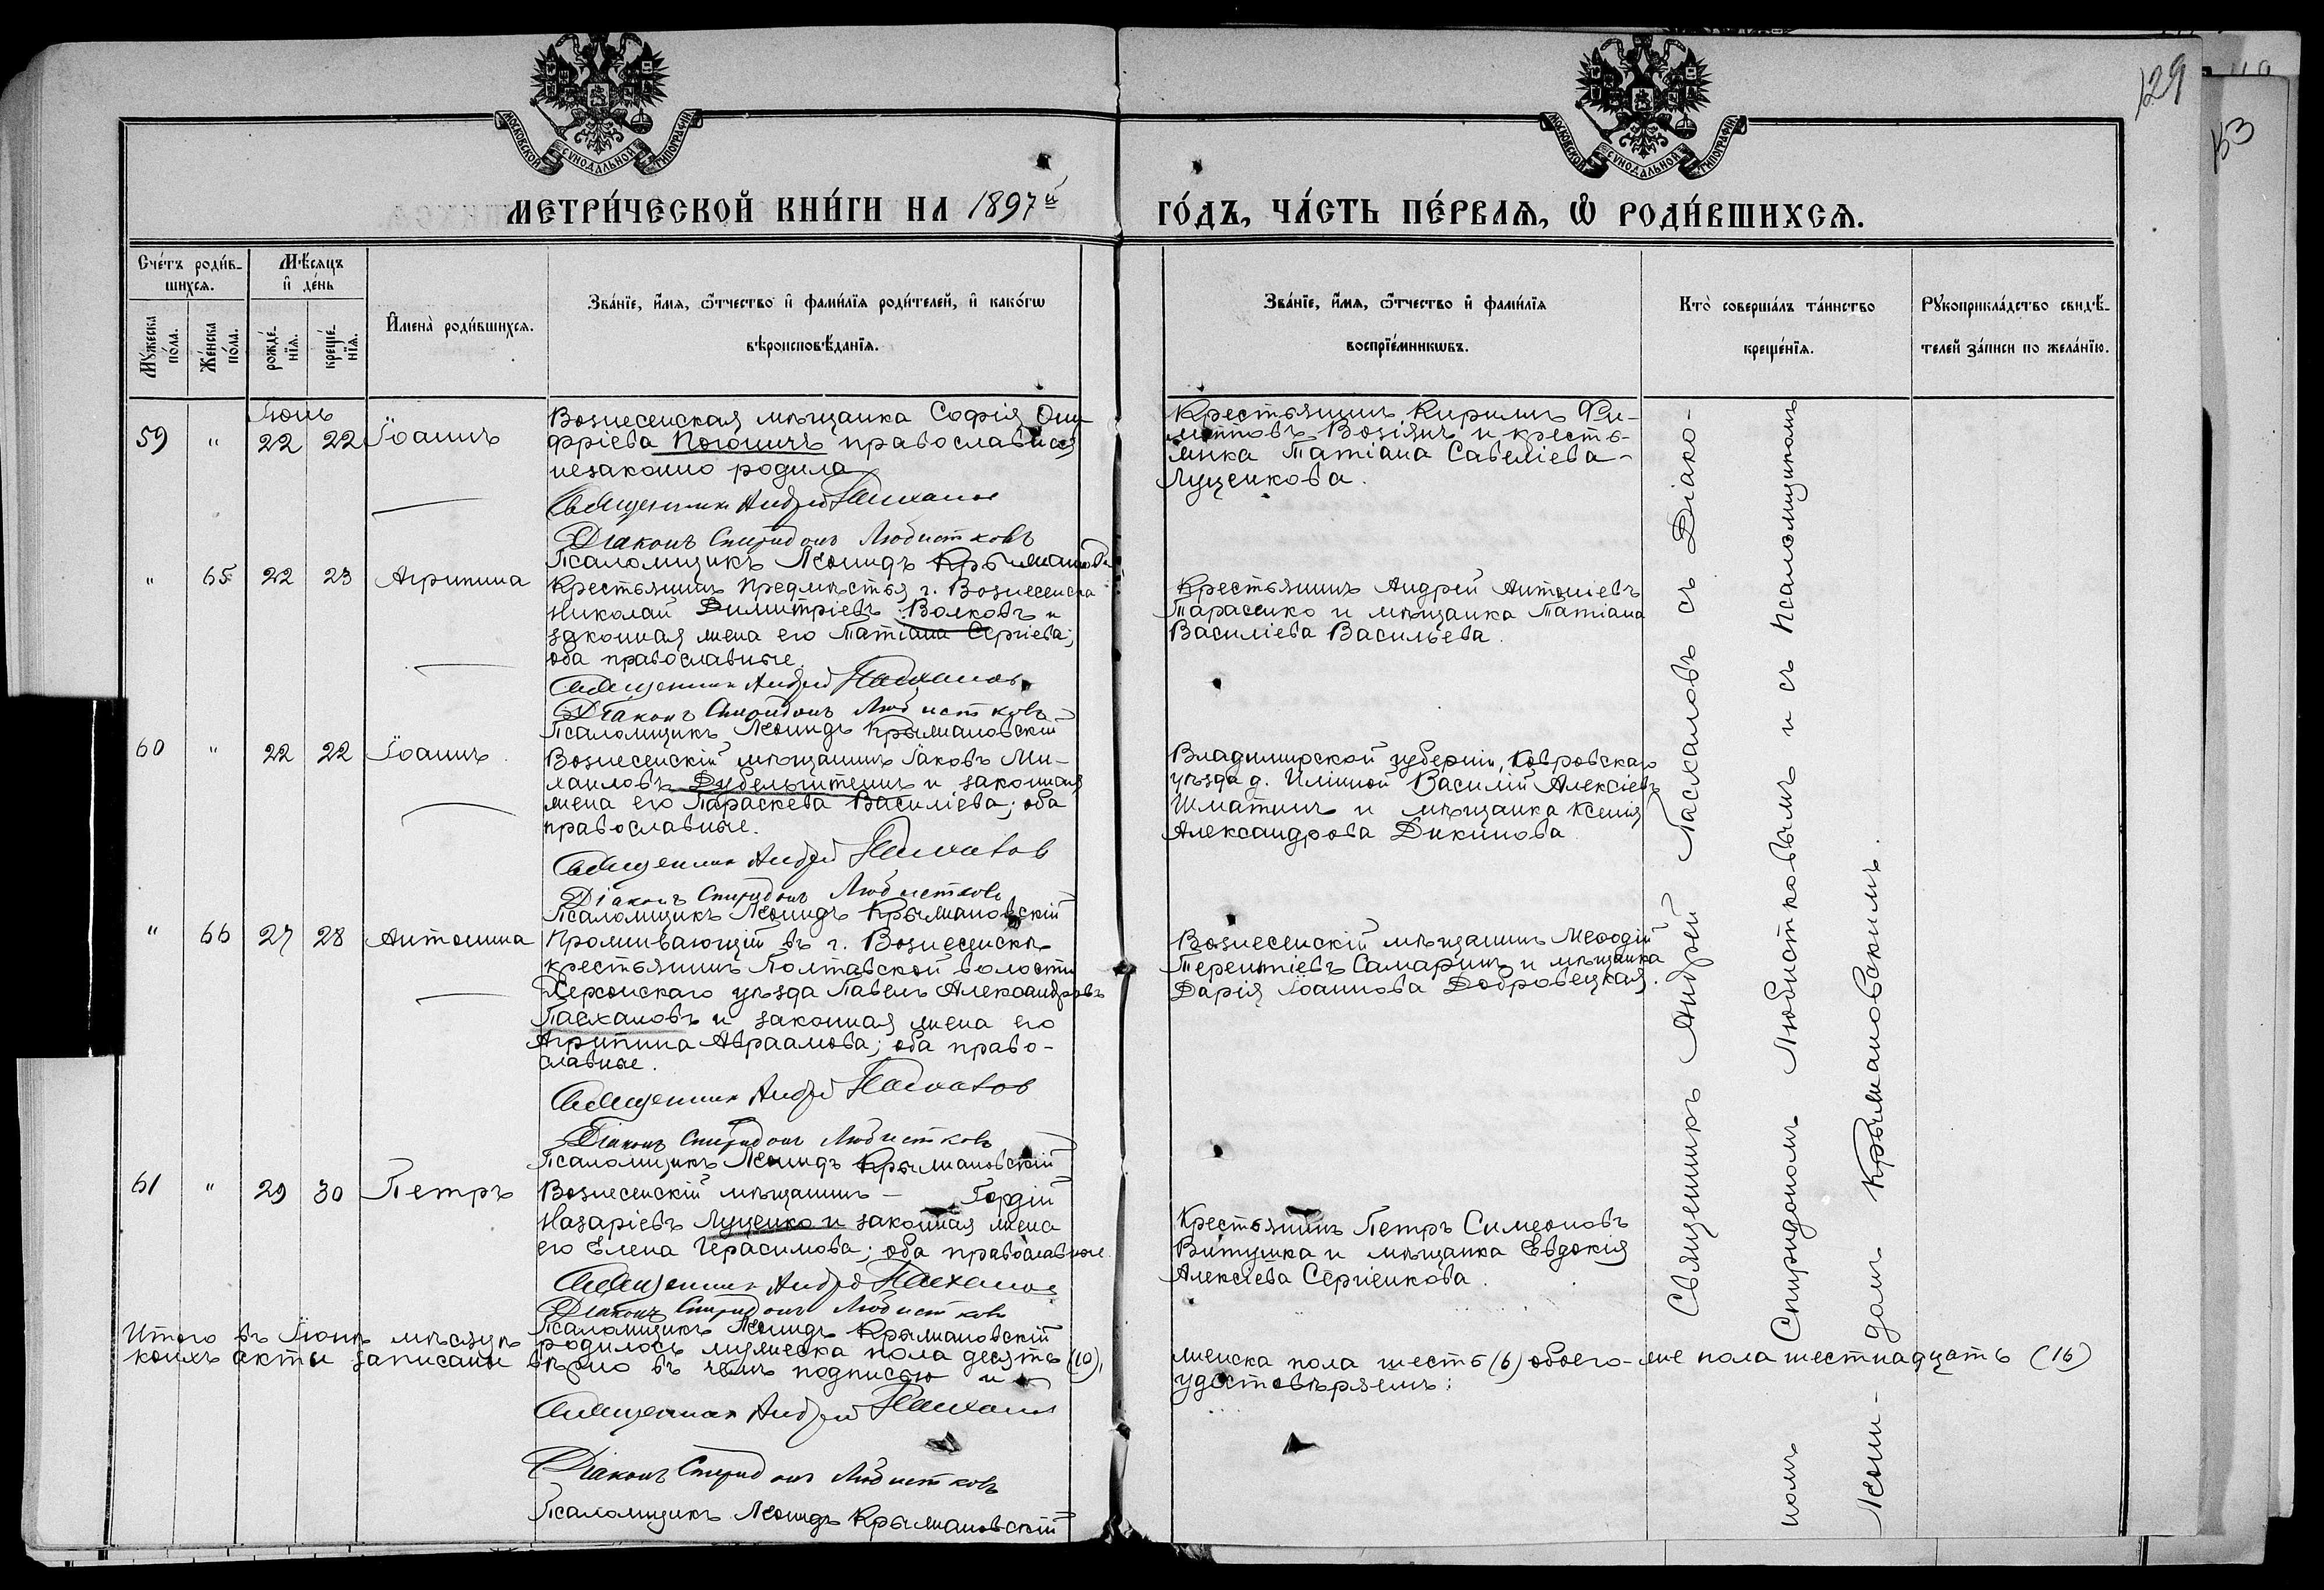 129
153
МОСКОВСКОЙ СѴНОДАЛЬНОЙ ТИПОГРАФІИ
МОСКОВСКОЙ СѴНОДАЛЬНОЙ ТИПОГРАФІИ
МЕТРИ́ЧЕСКОЙ КНИ́ГИ НА 1897й ГО́ДЪ, ЧА́СТЬ ПЕ́РВАѦ, Ѡ҆ РОДИ́ВШИХСѦ.
Сче́тъ роди́вшихсѧ.
Мꙋ́жеска по́ла.
Же́нска по́ла.
Мѣ́сѧцъ и҆ де́нь
рожде́нїѧ.
креще́нїѧ.
И҆мена̀ роди́вшихсѧ.
Зва́нїе, и҆́мѧ, ѻ҆́тчество и҆ фами́лїѧ роди́телей, и҆ како́гѡ
вѣроисповѣ́данїѧ.
Зва́нїе, и҆́мѧ, ѻ҆́тчество и҆ фами́лїѧ
воспрїе́мникѡвъ.
Кто̀ соверша́лъ та́инство
креще́нїѧ.
Рꙋкоприкла́дство свидѣ́-
телей за́писи по жела́нїю.
Іюнь
59 " 22 22 Іоаннъ
Вознесенская мѣщанка Софія Они-
фріева Погоничъ православная
незаконно родила
Священникъ Андрей Пасхаловъ
Діаконъ Спиридонъ Любистковъ
Псаломщикъ Леонидъ Крыжановскій
Крестьянинъ Кириллъ Фи-
липповъ Возіянъ и кресть-
янка Татіана Савеліева
Луценкова.
" 65 22 23 Агрипина
Крестьянинъ предмѣстья г. Вознесенска
Николай Димитріевъ Волковъ и
законная жена его Татіана Сергіева;
оба православные.
Священникъ Андрей Пасхаловъ
Діаконъ Спиридонъ Любистковъ
Псаломщикъ Леонидъ Крыжановскій
Крестьянинъ Андрей Антоніевъ
Тарасенко и мѣщанка Татіана
Василіева Васильева.
60 " 22 22 Іоаннъ
Вознесенскій мѣщанинъ Іаковъ Ми-
хаиловъ Дубельштенъ и законная
жена его Параскева Василіева; оба
православные.
Священникъ Андрей Пасхаловъ
Діаконъ Спиридонъ Любистковъ
Псаломщикъ Леонидъ Крыжановскій
Владимирской губерніи, Ковровскаго
уѣзда д. Илиной Василій Алексіевъ
Шматинъ и мѣщанка Ксенія
Александрова Дикинова
" 66 27 28 Антонина
Проживающій въ г. Вознесенскѣ
крестьянинъ Полтавской волости
Херсонскаго уѣзда Павелъ Александровъ
Пасхаловъ и законная жена его
Агрипина Авраамова; оба право-
славные.
Священникъ Андрей Пасхаловъ
Діаконъ Спиридонъ Любистковъ
Псаломщикъ Леонидъ Крыжановскій
Вознесенскій мѣщанинъ Меѳодій
Терентіевъ Самаринъ и мѣщанка
Дарія Іоаннова Добровецкая.
61 " 29 30 Петръ
Вознесенскій мѣщанинъ - Гордій
Назаріевъ Луценко и законная жена
его Елена Герасимова; оба православные.
Священникъ Андрей Пасхаловъ
Діаконъ Спиридонъ Любистковъ
Псаломщикъ Леонидъ Крыжановскій
Крестьянинъ Петръ Симеоновъ
Витушка и мѣщанка Евдокія
Алексіева Сергіенкова.
Священникъ Андрей Пасхаловъ съ Діако-
номъ Спиридономъ Любистковымъ и съ Псаломщикомъ
Леони-домъ Крыжановскимъ.
Итого въ Іюнѣ мѣсяцѣ родилось мужеска пола десять (10), женска пола шесть (6) обоего-же пола шестнадцать (16)
коихъ акты записаны вѣрно въ чемъ подписью и удостовѣряемъ:
Священникъ Андрей Пасхаловъ
Діаконъ Спиридонъ Любистковъ
Псаломщикъ Леонидъ Крыжановскій